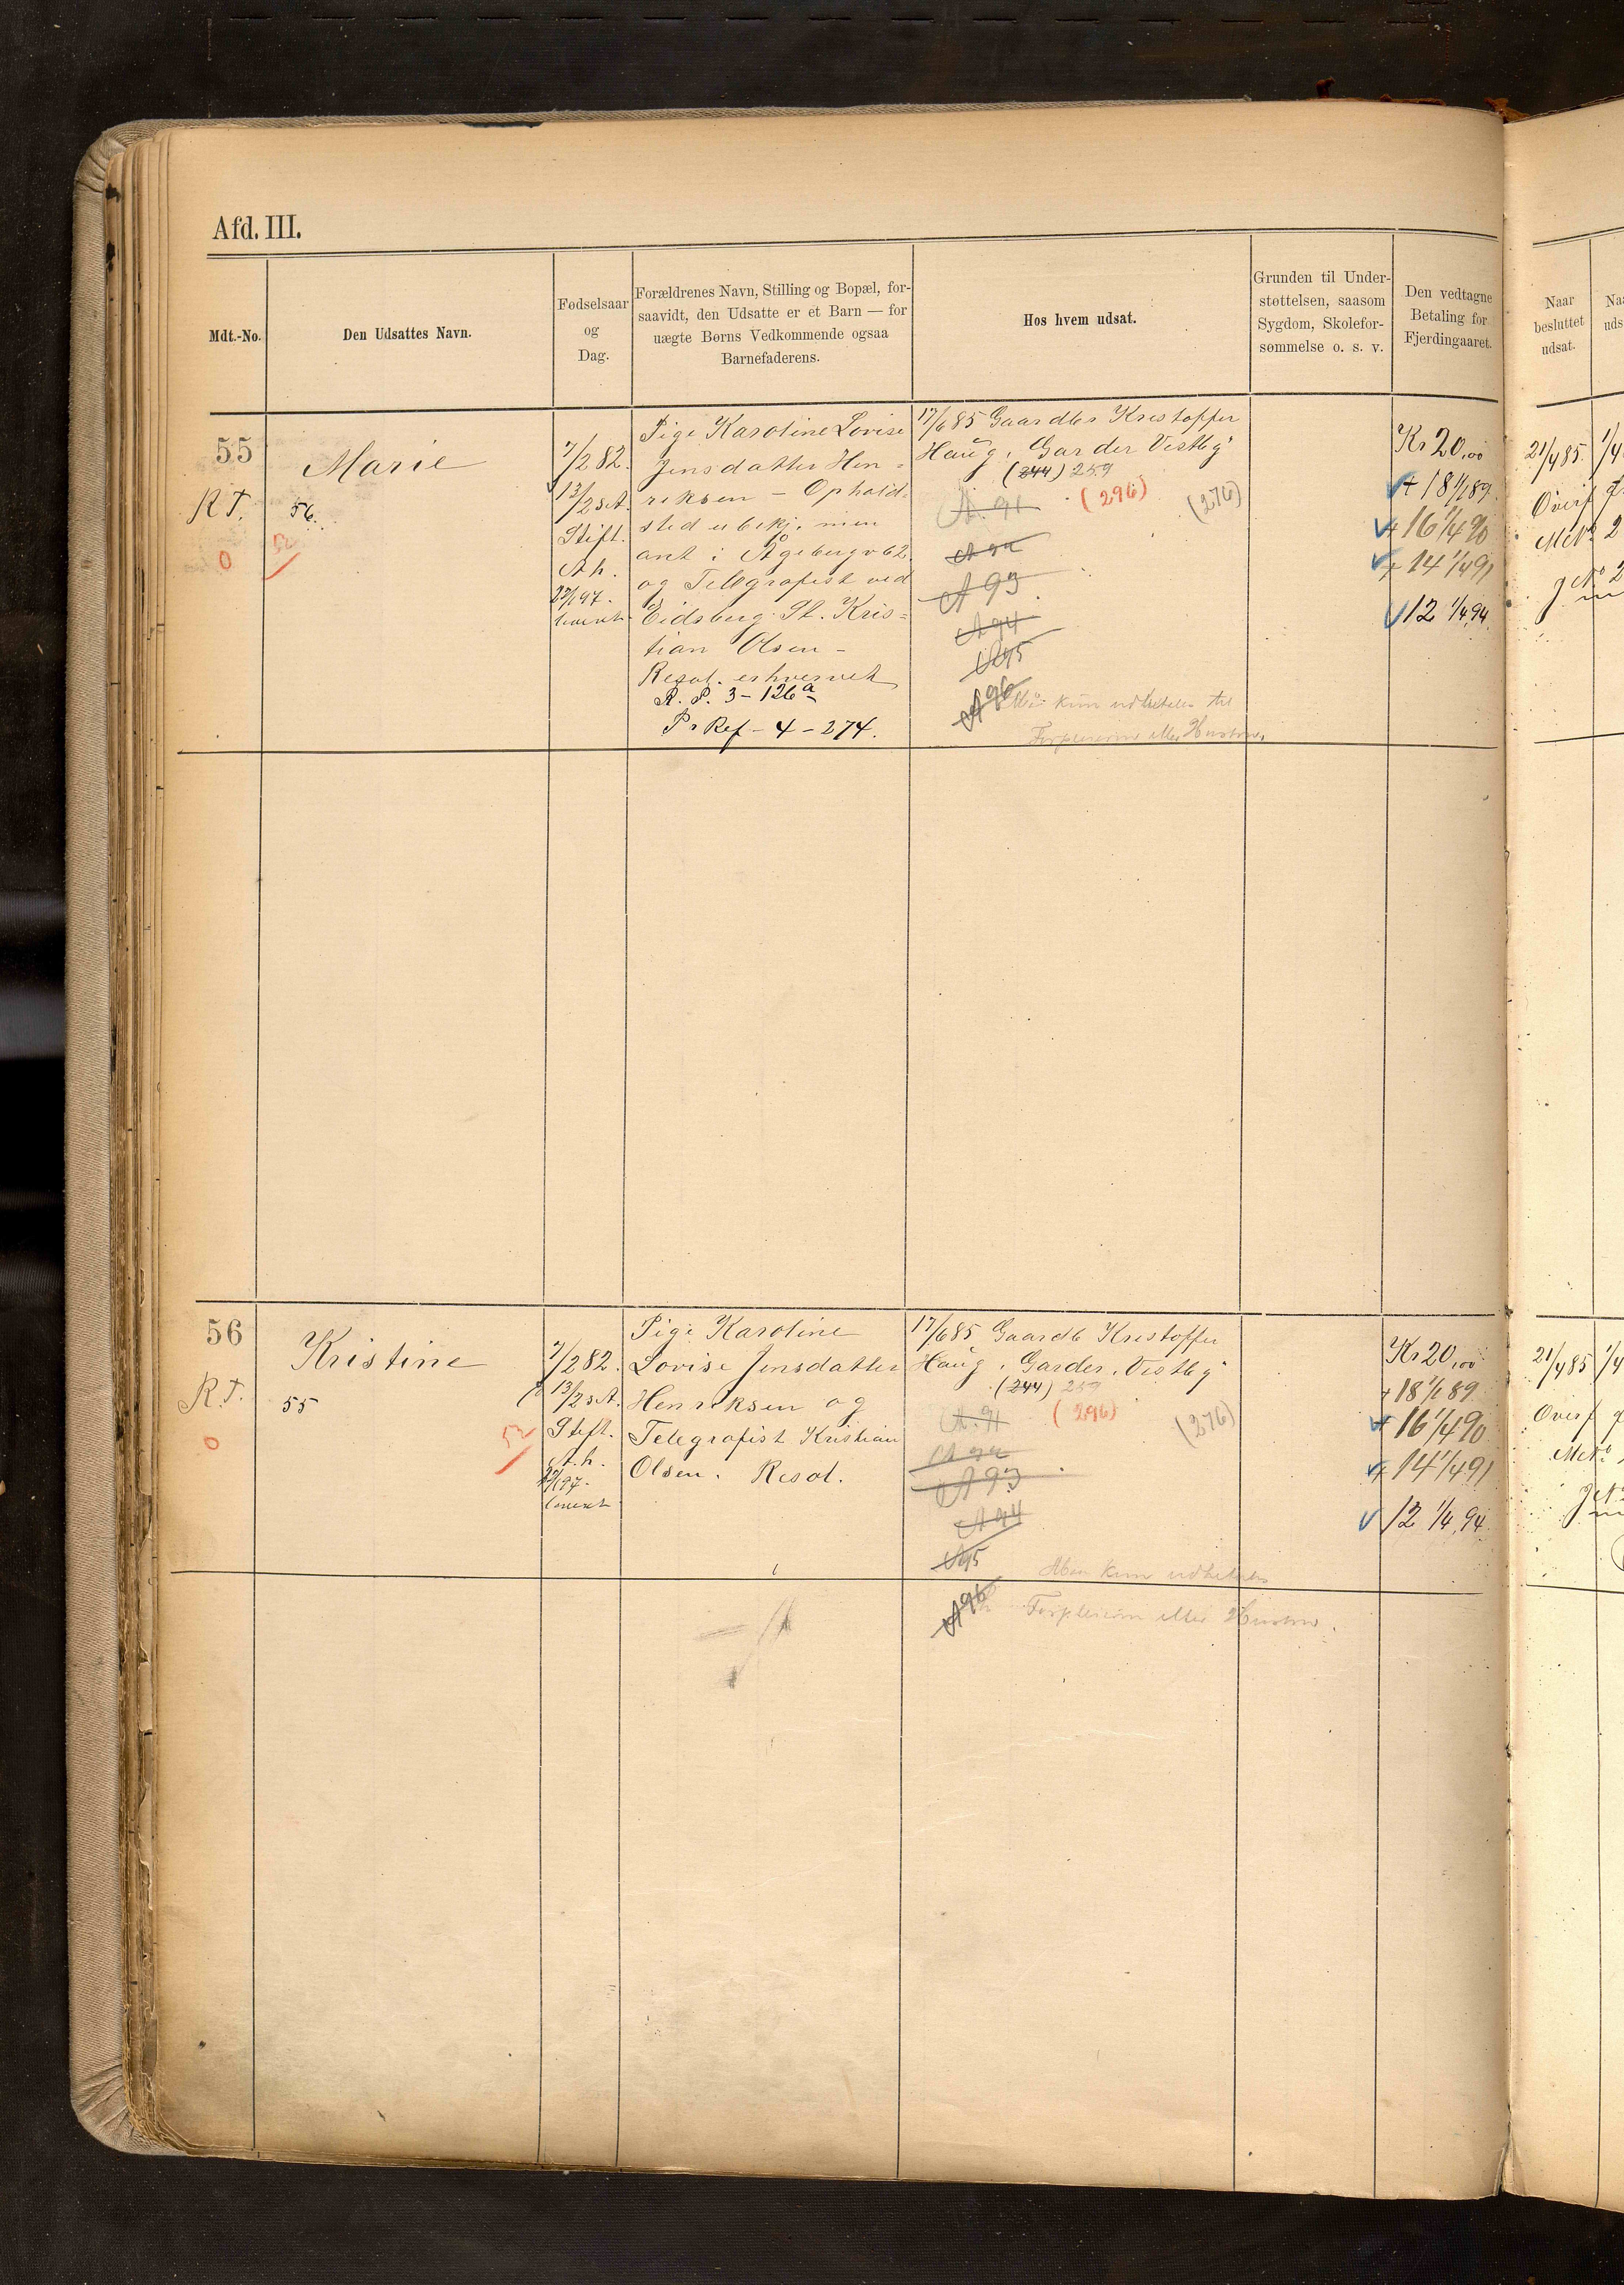 Afd. III.
Mdt.-No.
Den Udsattes Navn.
Fødselsaar
og
Dag.
Forældrenes Navn, Stilling og Bopæl, for-
saavidt, den Udsatte er et Barn — for
uægte Børns Vedkommende ogsaa
Barnefaderens.
Hos hvem udsat.
Grunden til Under-
støttelsen, saasom
Sygdom, Skolefor-
sømmelse o. s. v.
Den vedtagne
Betaling for
Fjerdingaaret.
Naar
besluttet
udsat.
55
R T.
0
Marie
56.
52
7/2 82.
13/2 s.A.
Stift.
A. h.
Pige Karoline Lovise
Jensdatter Hen-
riksen - Ophold-
sted ubekj. men
ant i Ågebergv 62
og Telegrafist ved
Eidsberg St. Kris=
tian Olsen -
Resol. erhvervet
R. P. 3 - 126a
Pr Ref - 4 - 274.
17/6 85 Gaardbr Kristoffer
Haug, Garder Vestby
(244) 259
A. 91 (296) (276)
A 92
A 93
A 94
A 95
A 96
kun udbetales til
eller Hustru.
Kr 20,00
+ 18 1/1 89
+ 16 1/4 90
+ 14 1/4 91
12 1/4 94
21/4 85
Overf
56
R. T.
0
Kristine
55
52
7/2 82.
13/2 s.A.
Stift.
A. h.
Pige Karoline
Lovise Jensdatter
Henriksen og
Telegrafist Kristian
Olsen. Resol.
17/6 85 Gaardb Kristoffer
Haug, Garder, Vestby
(244) 259
A. 91 (296) (276)
A 92
A 93
A 94
A 95
kun udbetales
A 96
eller Hustru.
Kr 20,00
+ 18 1/1 89
+ 16 1/4 90
+ 14 1/4 91
12 1/4 94
21/4 85
Overf